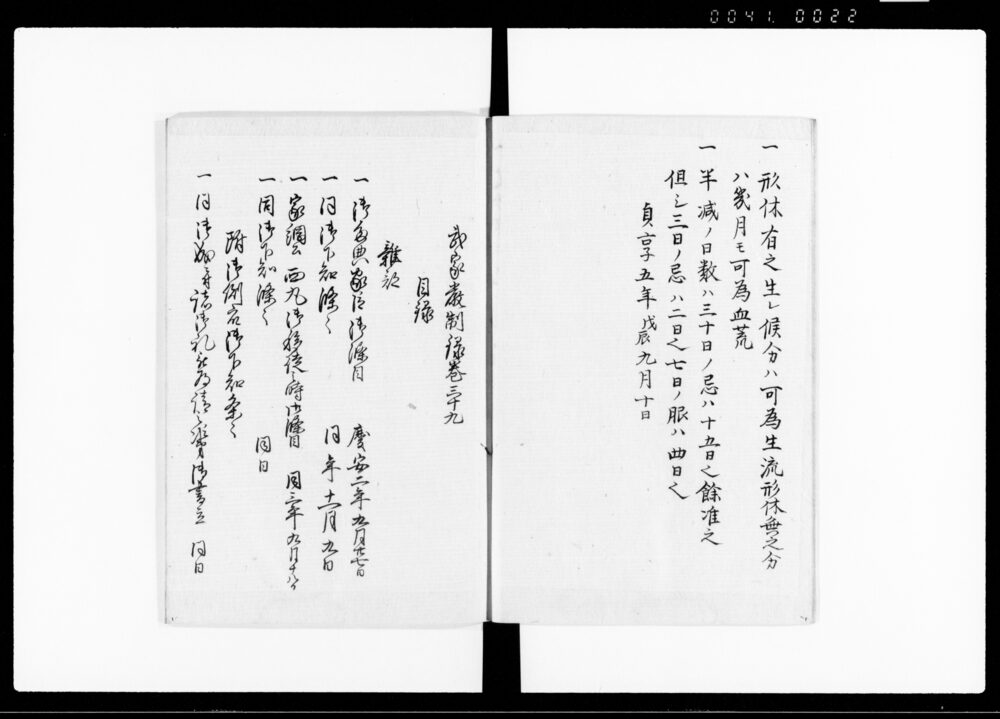 0041. 0022
一 形体有之生レ候分ハ可為生流形体無之分
ハ幾月モ可為血荒
一 半減ノ日数ハ三十日ノ忌ハ十五日也餘准之
但シ三日ノ忌ハ二日也七日ノ服ハ四日也
貞享五年戊辰九月十日
武家嚴制録巻三十九
目録
雜部
一 御條目 慶安二年九月廿七日
一 同御下知條々 同年十一月九日
一 家綱公西丸御移徙之時御條目 同三年九月十八日
一 同御下知條々 同日
附御側右御下知条々
一 同御書立 同日